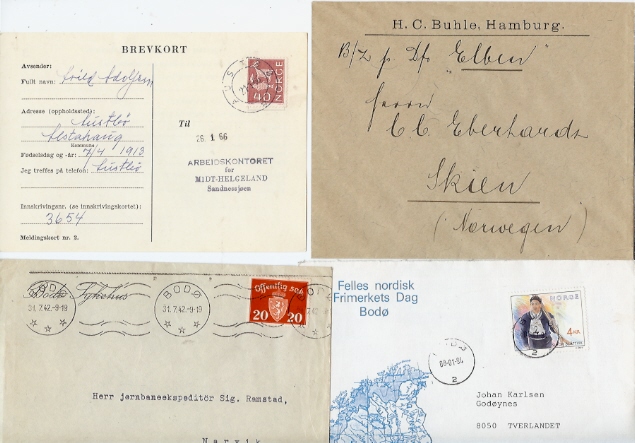 BREVKORT
Avsender:
Fullt navn:
Adresse (oppholdssted):
Austbø
Alstahaug
Kommune
Fødselsdag og -år: 7/4 1913
Jeg treffes på telefon: Austbø
Innskrivingsnr. (se innskrivingskortet):
3654
Meldingskort nr. 2.
NORGE
40
Til
26. 1 66
ARBEIDSKONTORET
for
MIDT-HELGELAND
Sandnessjøen
H. C. Buhle, Hamburg.
B/Z p. Df. "Elben"
Herrn
C. C. Eberhardt
Skien
(Norwegen)
Bodø Sykehus
BODØ
31.7.42.-9-19
BODØ
31.7.42.-9-19
Offentlig sak
20 20
Herr jernbaneekspeditör Sig. Ramstad,
Narvik
Felles nordisk
Frimerkets Dag
Bodø
NORGE
2
2
Johan Karlsen
Godøynes
8050 TVERLANDET